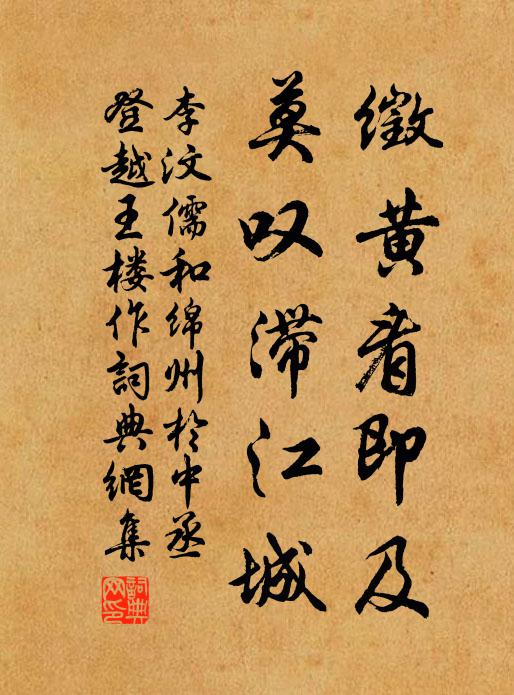 徵黄看即及
莫叹滞江城
李汶儒和绵州於中丞
登越王楼作詞典網集
詞典
网印